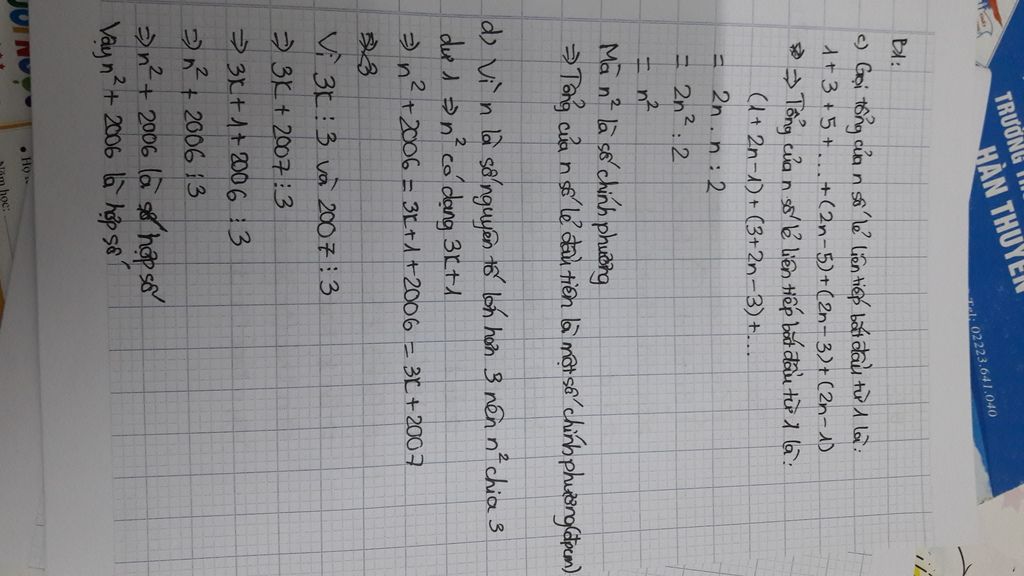 B1:
c) Gọi tổng của n số lẻ liên tiếp bắt đầu từ 1 là:
1 + 3 + 5 + ... + (2n - 5) + (2n - 3) + (2n - 1)
=> Tổng của n số lẻ liên tiếp bắt đầu từ 1 là:
(1 + 2n - 1) + (3 + 2n - 3) + ...
= 2n . n : 2
= 2n² : 2
= n²
Mà n² là số chính phương
=> Tổng của n số lẻ đầu tiên là một số chính phương (đpcm)
d) Vì n là số nguyên tố lớn hơn 3 nên n² chia 3
dư 1 => n² có dạng 3x + 1
=> n² + 2006 = 3x + 1 + 2006 = 3x + 2007
Vì 3x ⋮ 3 và 2007 ⋮ 3
=> 3x + 2007 ⋮ 3
=> 3x + 1 + 2006 ⋮ 3
=> n² + 2006 ⋮ 3
=> n² + 2006 là hợp số
Vậy n² + 2006 là hợp số
TRƯỜNG
HÀN THUYÊN
Tel: 02223.641.040